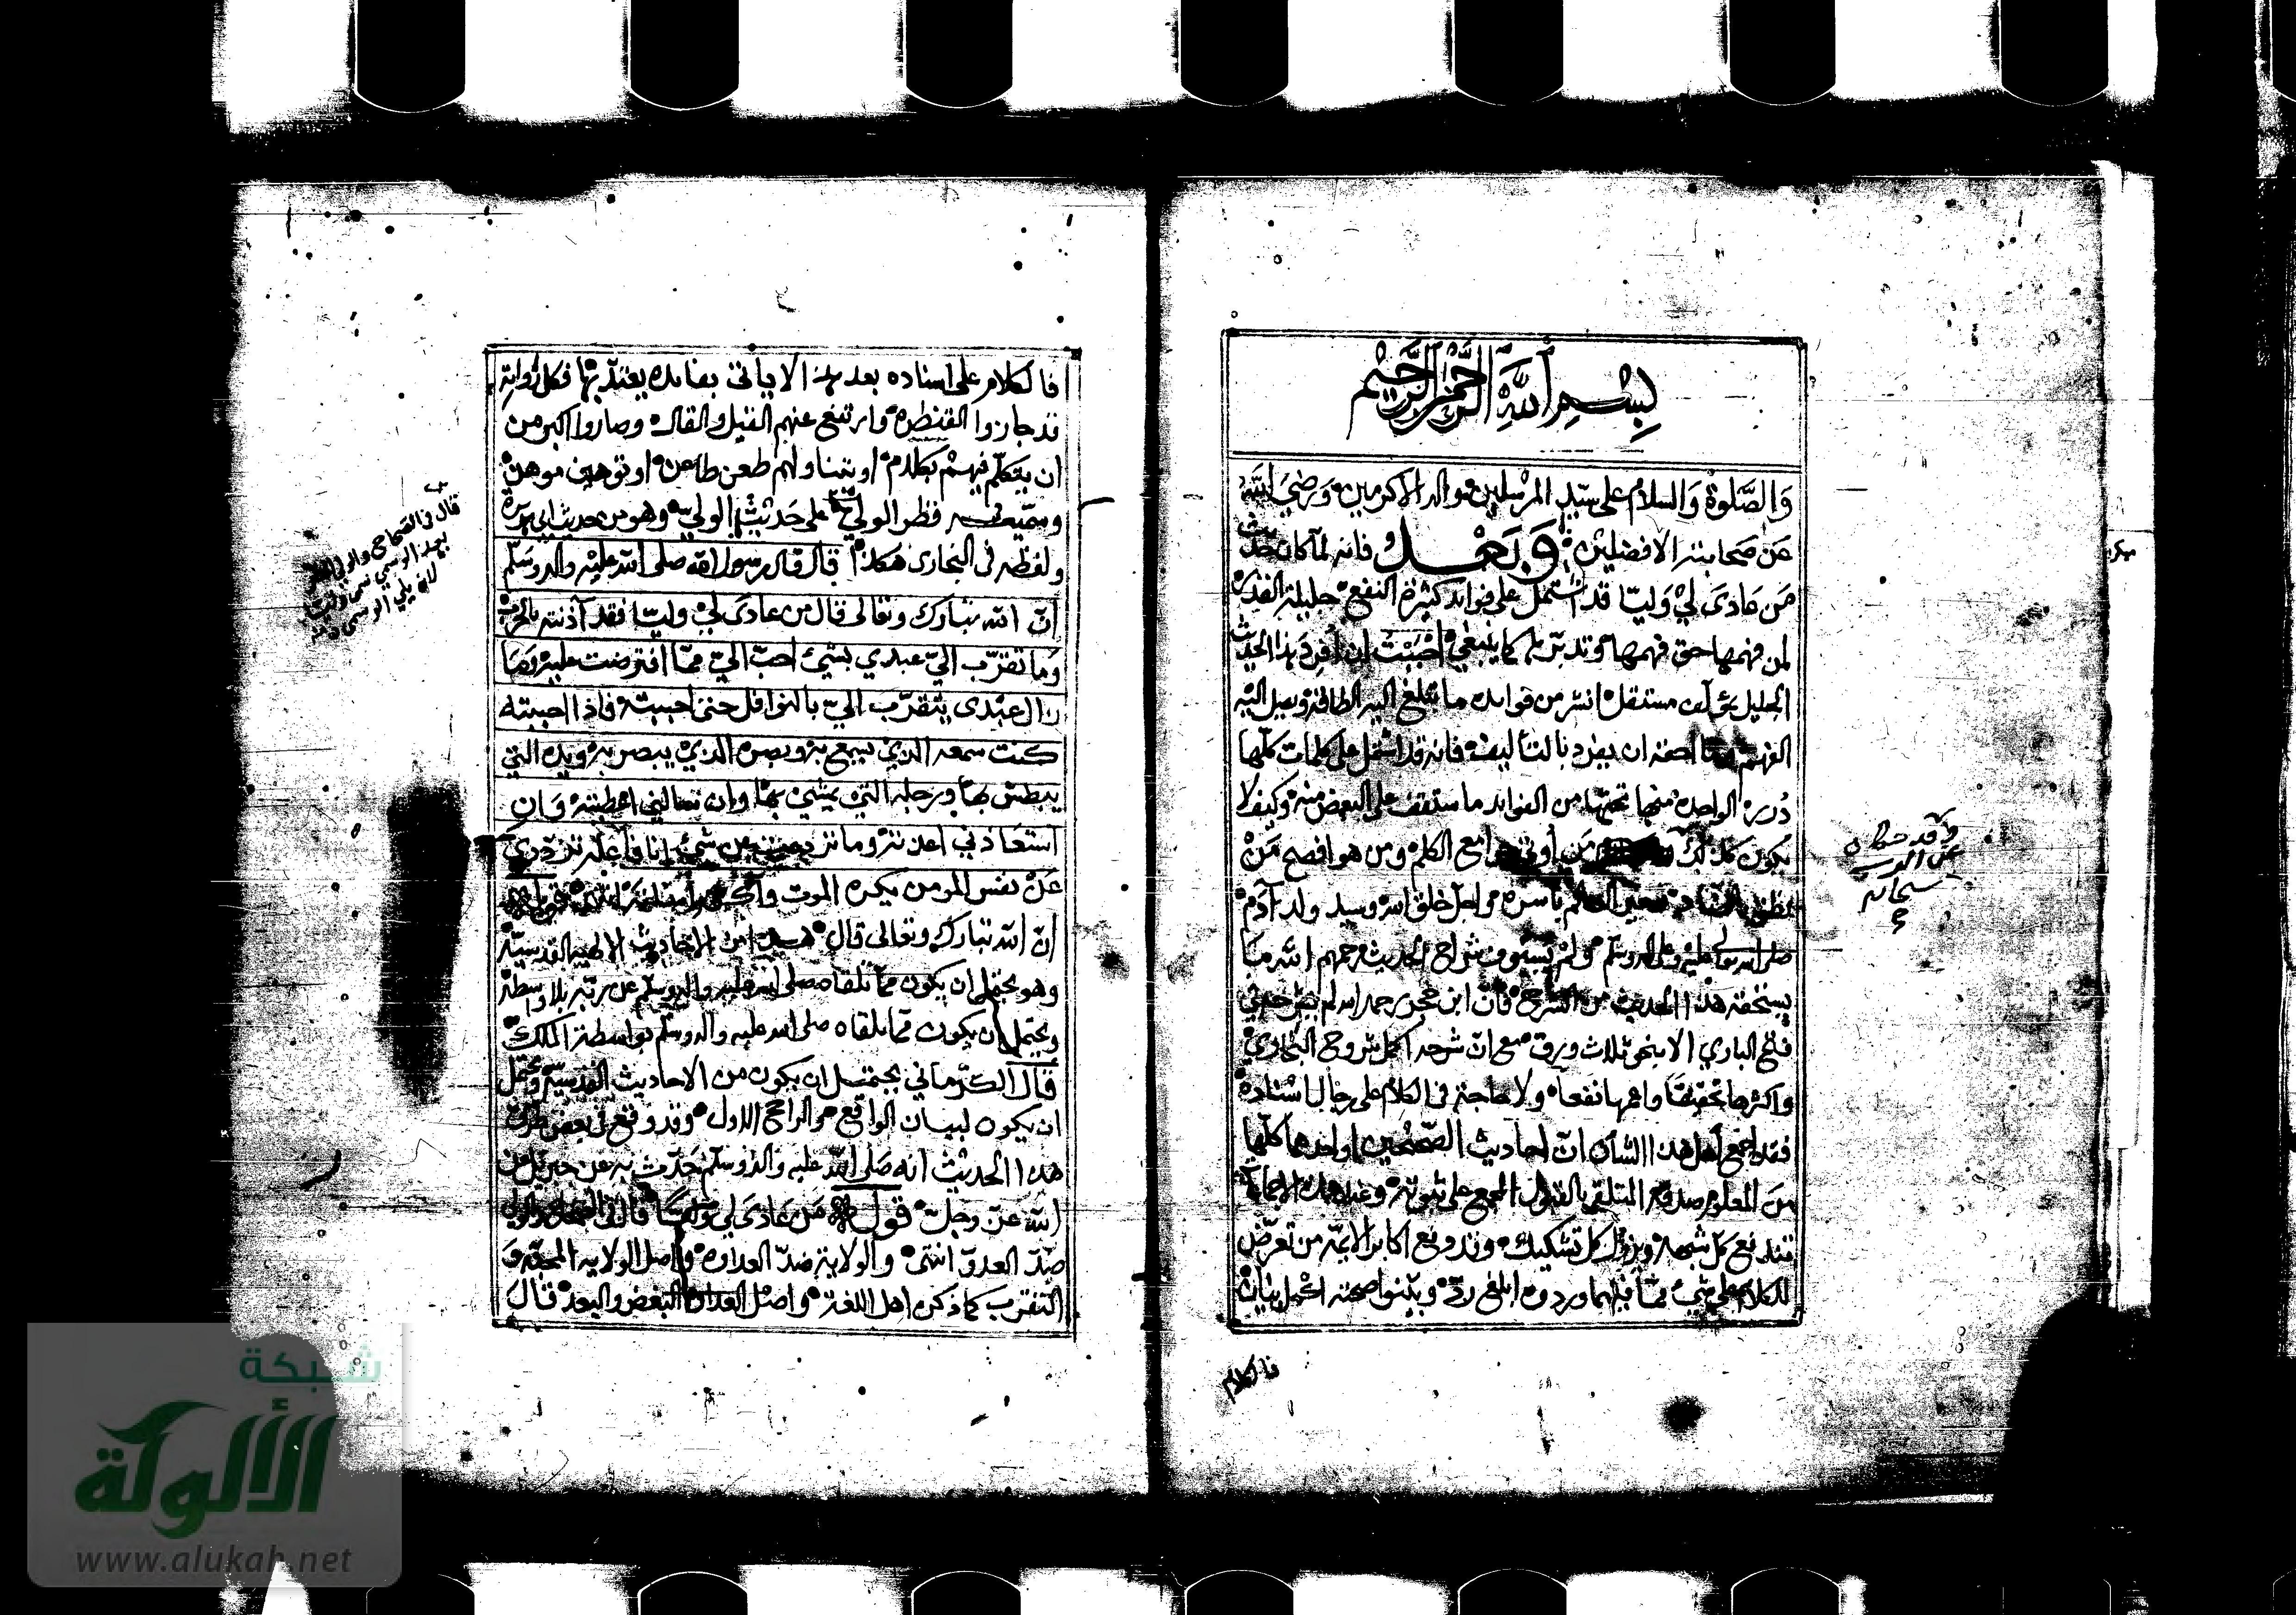 بسم الله الرحمن الرحيم
والصلوة والسلام على سيد المرسلين وآله الاكرمين ورضي الله
عن صحابته الافضلين وبعد فانه لما كان حديث
من عادى لي وليا قد اشتمل على فوايد كثيرة النفع جليلة القدر
لمن فهمها حق فهمها وتدبرها كما ينبغي احببت ان افرد هذا الحديث
الجليل بمؤلف مستقل انشر من فوايده ما تبلغ اليه الطاقة ويصل اليه
الفهم وما احقه ان يفرد بالتأليف فانه قد اشتمل على كلمات كلها
درر الواحدة منها تحتها من الفوايد ما ستقف على البعض منه وكيف لا
يكون كذلك من أوتي جوامع الكلم ومن هو افصح من
نطق بالضاد وخير العالم بأسره واجل خلق الله وسيد ولد آدم
صلى الله عليه وعلى آله وسلم ولم يستوف شراح الحديث رحمهم الله ما
يستحقه هذا الحديث من الشرح فان ابن حجر رحمه الله لم يشرحه في
فتح الباري الا بنحو ثلاث ورق مع ان شرحه اكمل شروح البخاري
واكثرها تحقيقا واعمها نفعا ولا حاجة في الكلام على رجال اسناده
فقد اجمع أهل هذا الشأن ان احاديث الصحيحين او احدهما كلها
من المعلوم صدقه المتلقى بالقبول المجمع على ثبوته وعند هذه الاجماعات
تندفع كل شبهة ويزول كل تشكيك وقد دفع اكابر الايمة من تعرض
للكلام على شيء مما فيهما وردوه ابلغ رد وبينوا صحته اكمل بيان
فالكلام
وقد حكاه
عن الرب
سبحانه
فالكلام على اسناده بعد هذا لا ياتي بفايدة يعتد بها فكل رواته
قد جازوا القنطرة وارتفع عنهم القيل والقال وصاروا اكبر من
ان يتكلم فيهم بكلام او يتناولهم طعن طاعن او توهين موهن
وسميته قطر الولي على حديث الولي وهو من حديث ابي هريرة
ولفظه في البخاري هكذا قال قال رسول الله صلى الله عليه وآله وسلم
ان الله تبارك وتعالى قال من عادى لي وليا فقد آذنته بالحرب
وما تقرب الي عبدي بشيء احب الي مما افترضت عليه وما
زال عبدي يتقرب الي بالنوافل حتى احببته فاذا احببته
كنت سمعه الذي يسمع به وبصره الذي يبصر به ويده التي
يبطش بها ورجله التي يمشي بها وان سالني اعطيته وان
استعاذني اعذته وما ترددت عن شيء انا فاعله ترددي
عن نفس المومن يكره الموت واكره
ان الله تبارك وتعالى قال هذا من الاحاديث الالهية القدسية
وهو يحتمل ان يكون مما تلقاه صلى الله عليه وآله وسلم عن ربه بلا واسطة
ويحتمل ان يكون مما تلقاه صلى الله عليه وآله وسلم بواسطة الملك
قال الكرماني يحتمل ان يكون من الاحاديث القدسية ويحتمل
ان يكون لبيان الواقع والراجح الاول وقد وقع في بعض طرق
هذا الحديث انه صلى الله عليه وآله وسلم حدث به عن جبريل عن
الله عز وجل قوله من عادى لي وليا قال في الصحاح والولي
ضد العدو انتهى والولاية ضد العداوة واصل الولاية المحبة و
التقرب كما ذكره اهل اللغة واصل العداوة البغض والبعد قال
قال في الصحاح والولي المطر
بعد الوسمي سمي وليا
لانه يلي الوسمي
شبكة
الألوكة
www.alukah.net